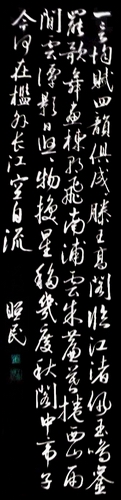 一言均賦四韻俱成滕王高閣臨江渚佩玉鳴鑾
罷歌舞畫棟朝飛南浦雲朱簾暮捲西山雨
閒雲潭影日悠悠物換星移幾度秋閣中帝子
今何在檻外長江空自流
昭民